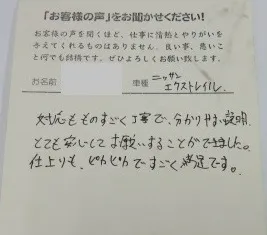 「お客様の声」をお聞かせください！
お客様の声を聞くほど、仕事に情熱とやりがいを
与えてくれるものはありません。良い事、悪いこ
と何でも結構です。ぜひよろしくお願い致します。
お名前 車種 ニッサン
エクストレイル
対応もものすごく丁寧で、分かりやすい説明
とても安心してお願いすることができました。
仕上りも、ピカピカですごく満足です。